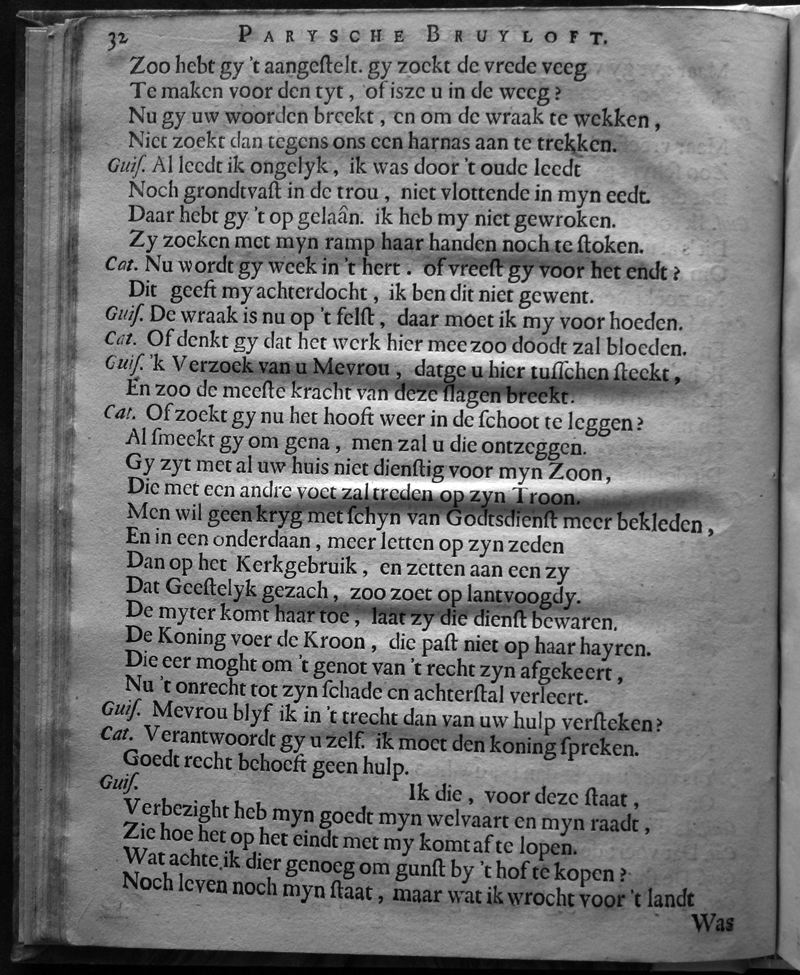 32 PARYSCHE BRUYLOFT.
Zoo hebt gy 't aangeſtelt. gy zoekt de vrede veeg
Te maken voor den tyt, of isze u in de weeg?
Nu gy uw woorden breekt, en om de wraak te wekken,
Niet zoekt dan tegens ons een harnas aan te trekken.
Guiſ. Al leedt ik ongelyk, ik was door 't oude leedt
Noch grondtvaſt in de trou, niet vlottende in myn eedt.
Daar hebt gy 't op gelaân. ik heb my niet gewroken.
Zy zoeken met myn ramp haar handen noch te ſtoken.
Cat. Nu wordt gy week in 't hert. of vreeſt gy voor het endt?
Dit geeft my achterdocht, ik ben dit niet gewent.
Guiſ. De wraak is nu op 't felſt, daar moet ik my voor hoeden.
Cat. Of denkt gy dat het werk hier mee zoo doodt zal bloeden.
Guiſ. 'k Verzoek van u Mevrou, datge u hier tuſſchen ſteekt,
En zoo de meeſte kracht van deze ſlagen breekt.
Cat. Of zoekt gy nu het hooft weer in de ſchoot te leggen?
Al ſmeekt gy om gena, men zal u die ontzeggen.
Gy zyt met al uw huis niet dienſtig voor myn Zoon,
Die met een andre voet zal treden op zyn Troon.
Men wil geen kryg met ſchyn van Godtsdienſt meer bekleden,
En in een onderdaan, meer letten op zyn zeden
Dan op het Kerkgebruik, en zetten aan een zy
Dat Geeſtelyk gezach, zoo zoet op lantvoogdy.
De myter komt haar toe, laat zy die dienſt bewaren.
De Koning voer de Kroon, die paſt niet op haar hayren.
Die eer moght om 't genot van 't recht zyn afgekeert,
Nu 't onrecht tot zyn ſchade en achterſtal verleert.
Guiſ. Mevrou blyf ik in 't trecht dan van uw hulp verſteken?
Cat. Verantwoordt gy u zelf. ik moet den koning ſpreken.
Goedt recht behoeft geen hulp.
Guiſ. Ik die, voor deze ſtaat,
Verbezight heb myn goedt myn welvaart en myn raadt,
Zie hoe het op het eindt met my komt af te lopen.
Wat achte ik dier genoeg om gunſt by 't hof te kopen?
Noch leven noch myn ſtaat, maar wat ik wrocht voor 't landt
Was